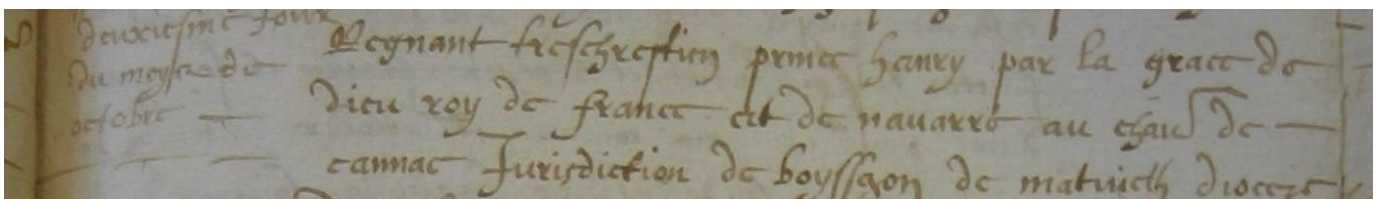 deuxiesme jour
du moys de
octobre
Regnant treschrestien prince henry par la grace de
dieu roy de france et de navarre au chau de
cannac Jurisdiction de boyssezon de matvieth dioceze